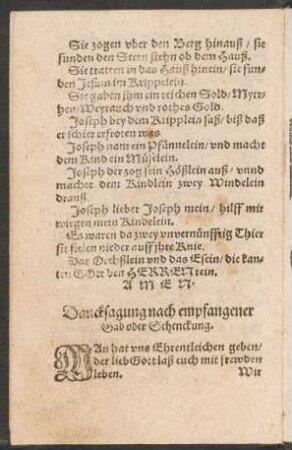 Sie zogen vber den Berg hinauß / sie
funden den Stern stehn ob dem Hauß.
Sie tratten in das Hauß hinein / sie fun-
den Jesum im Krippelein.
Sie gaben jhm ein reichen Sold / Myrr-
hen / Weyrauch vnd rothes Gold.
Joseph bey dem Kripplein saß / biß daß
er schier erfroren was
Joseph nam ein Pfännelein / vnd macht
dem Kind ein Müselein.
Joseph der zog sein Hößlein auß / vnnd
machet dem Kindlein zwey Windelein
drauß.
Joseph lieber Joseph mein / hilff mir
wiegen mein Kindelein.
Es waren da zwey vnvernünfftig Thier
sie fielen nieder auff jhre Knie.
Das Oechßlein vnd das Eselein / die kan-
ten Gott den HERREN rein.
AMEN.
Dancksagung nach empfangener
Gab oder Schenckung.
MAn hat vns Ehrentleichen geben /
der lieb Gott laß euch mit frewden
leben. Wir